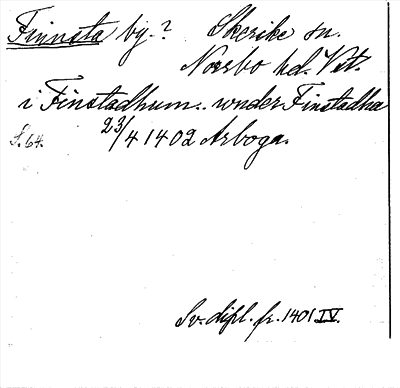 Finnsta by.? Skerike sn.
Norrbo hd. Vst.
i Finstadhum.. wnder Finstadha
S. 64. 23/4 1402 Arboga.
Sv. dipl. fr. 1401 IV.